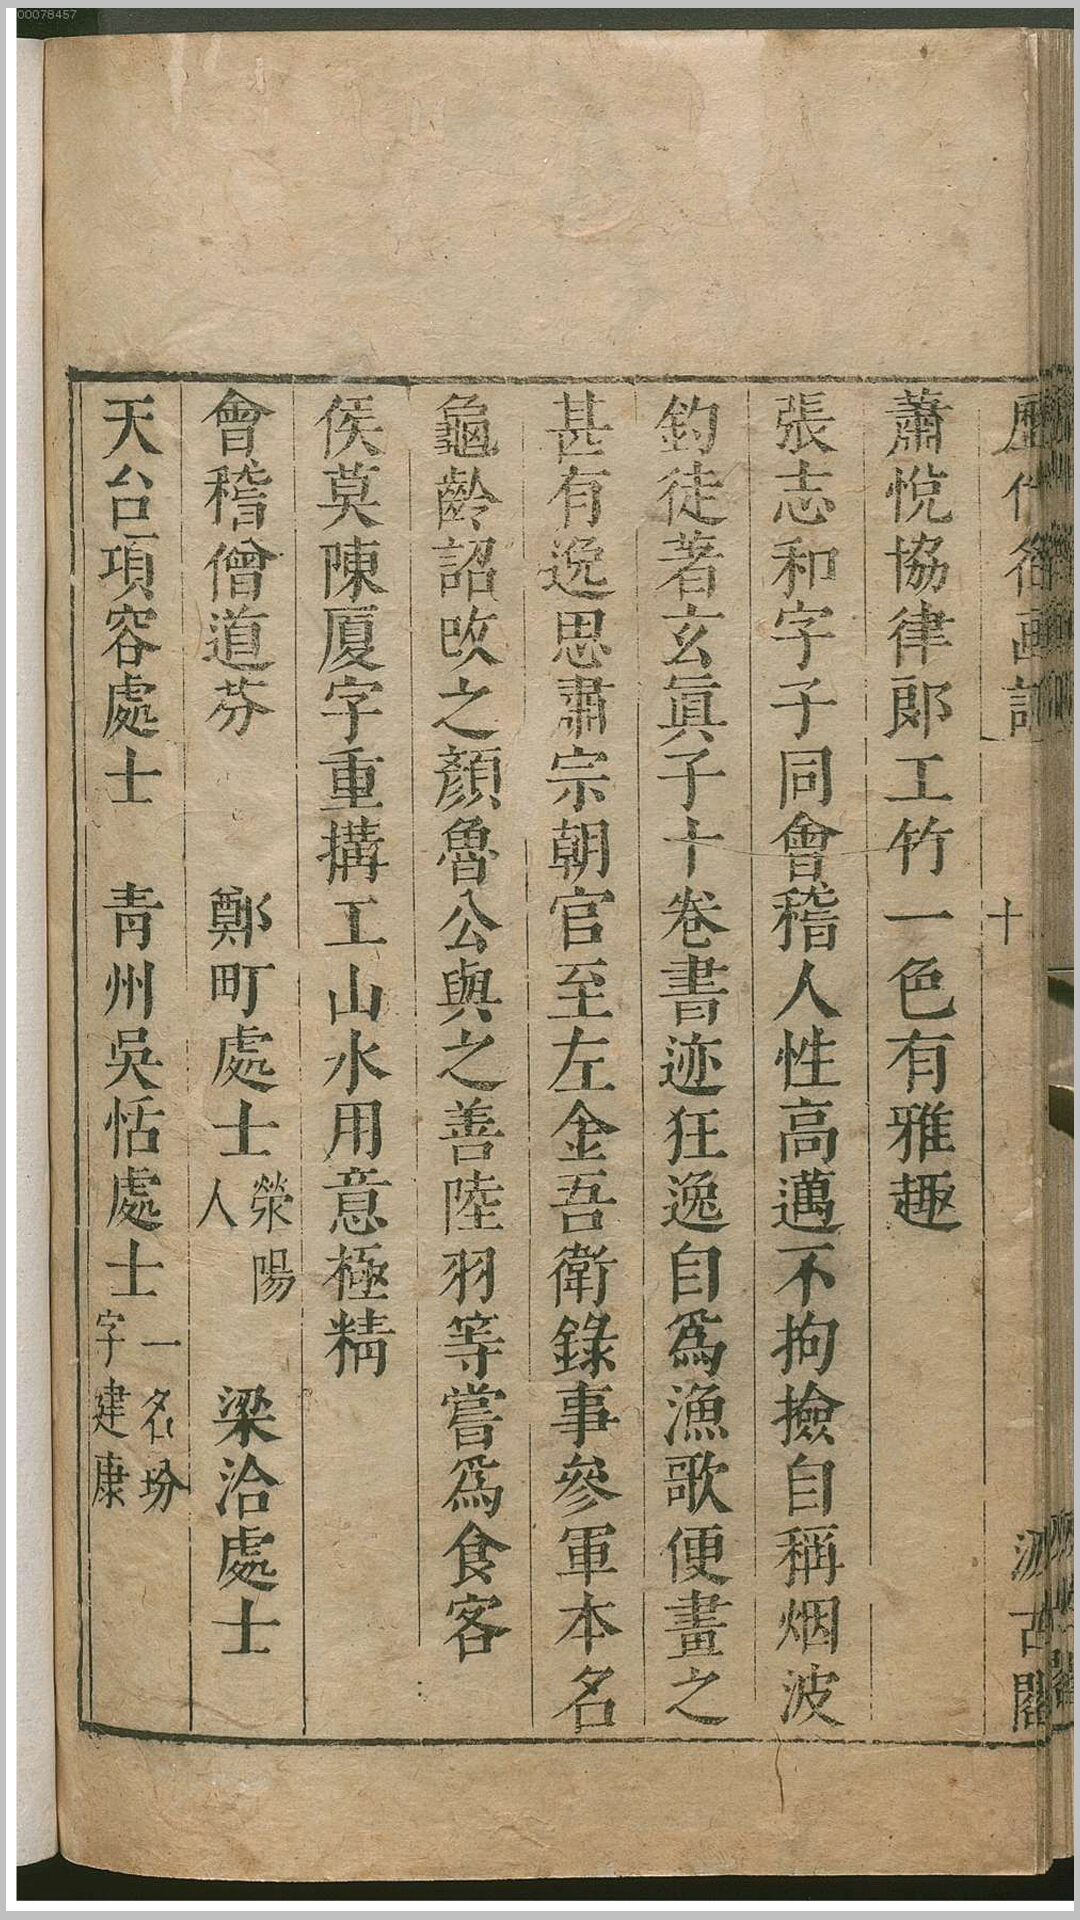 00078457
歷代名画記
十
汲古閣
蕭悅協律郎工竹一色有雅趣
張志和字子同會稽人性高邁不拘撿自稱烟波
釣徒著玄眞子十卷書迹狂逸自爲漁歌便畫之
甚有逸思肅宗朝官至左金吾衛錄事參軍本名
龜齡詔改之顏魯公與之善陸羽等嘗爲食客
侯莫陳厦字重搆工山水用意極精
會稽僧道芬 鄭町處士 滎陽人 梁洽處士
天台項容處士 青州吳恬處士 一名玢字建康